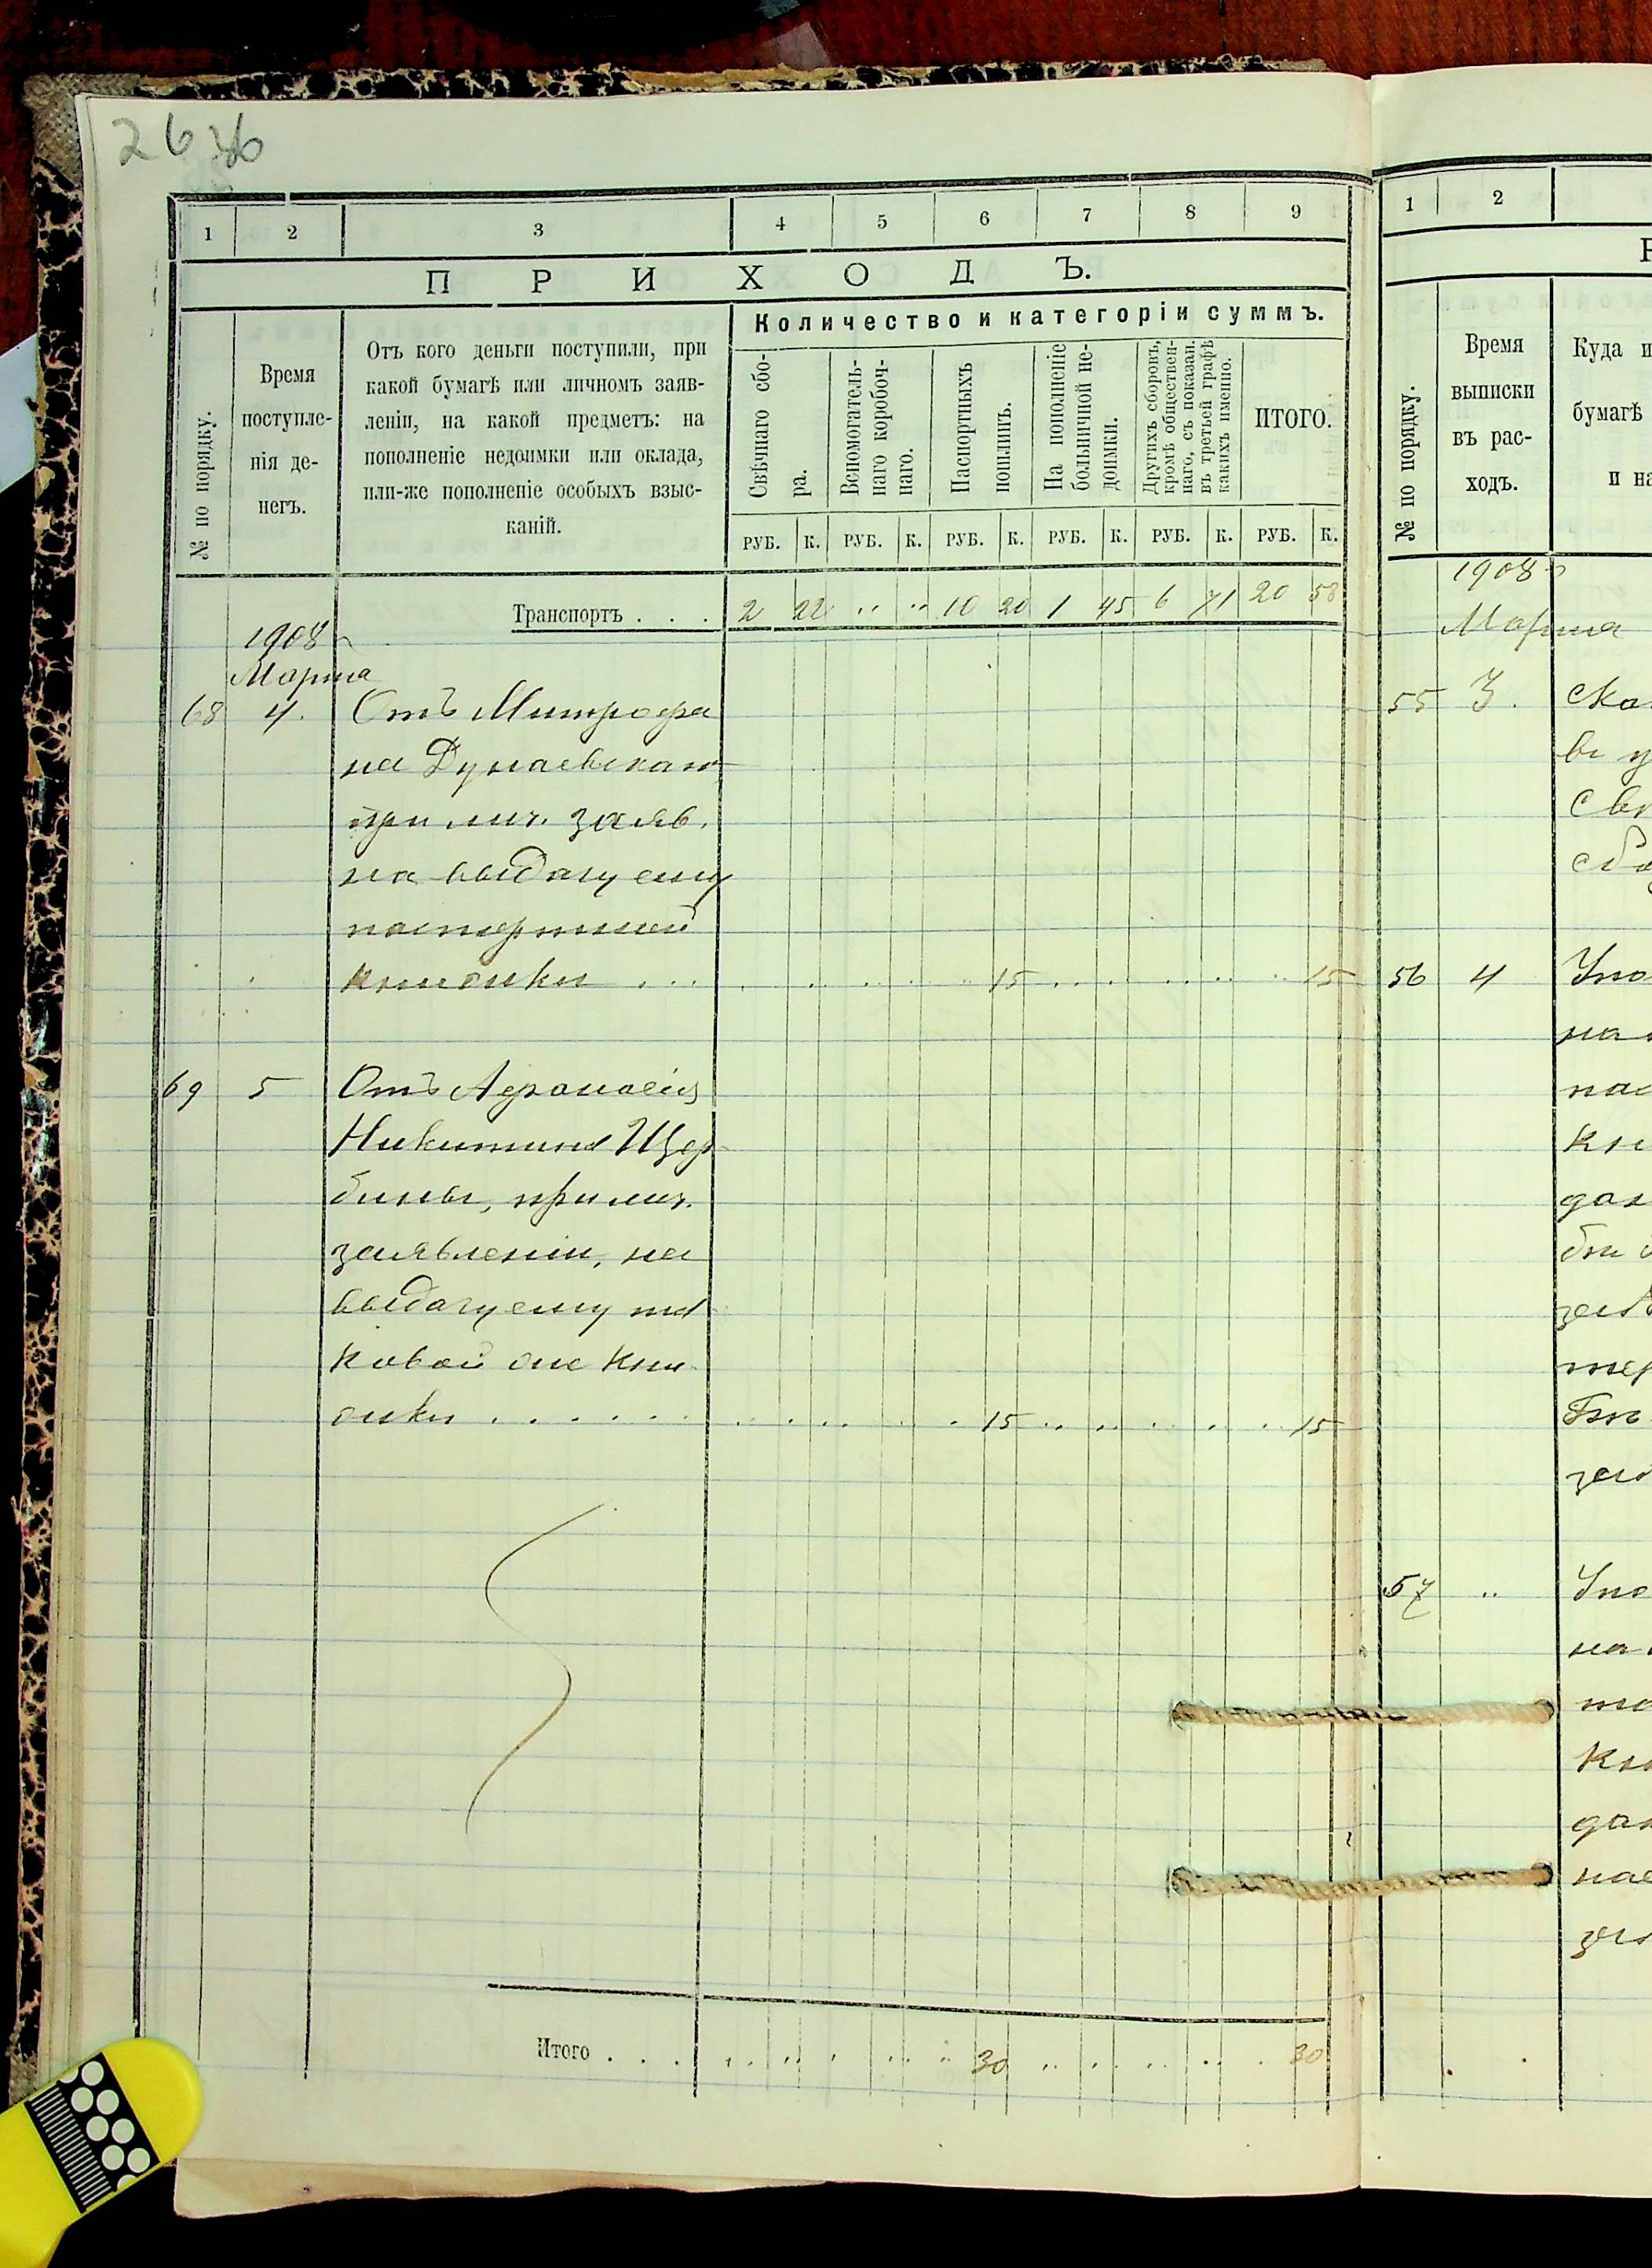 26 об
1 2 3 4 5 6 7 8 9
ПРИХОДЪ.
№ по порядку.
Время
поступле-
нія де-
негъ.
Отъ кого деньги поступили, при
какой бумагѣ или личномъ заяв-
леніи, на какой предметъ: на
пополненіе недоимки или оклада,
или-же пополненіе особыхъ взыс-
каній.
Количество и категоріи суммъ.
Свѣчнаго сбо-
ра.
Вспомогатель-
наго коробоч-
наго.
Паспортныхъ
пошлинъ.
На пополненіе
больничной не-
доимки.
Другихъ сборовъ,
кромѣ обществен-
наго, съ показан.
въ третьей графѣ
какихъ именно.
ИТОГО.
РУБ. К. РУБ. К. РУБ. К. РУБ. К. РУБ. К. РУБ. К.
Транспортъ . . . 2 22 " " 10 20 1 45 6 71 20 58
1908 г
Марта
68 4. Отъ Митрофа
на Дунаевскаго
при лич. заяв.
на выдачу ему
паспортной
книжки . . . 15 15
69 5 Отъ Афанасія
Никитина Щер
бины, при лич.
заявленіи, на
выдачу ему та
ковой же кни
жки . . . . . . 15 15
Итого . . . 30 30
1 2
№ по порядку.
Время
выписки
въ рас-
ходъ.
Куда и
бумагѣ
и на
1908 г
Марта
55 3.
въ у
Свѣ
сбо
56 4
на
пас
кни
57 "
на
та
кни